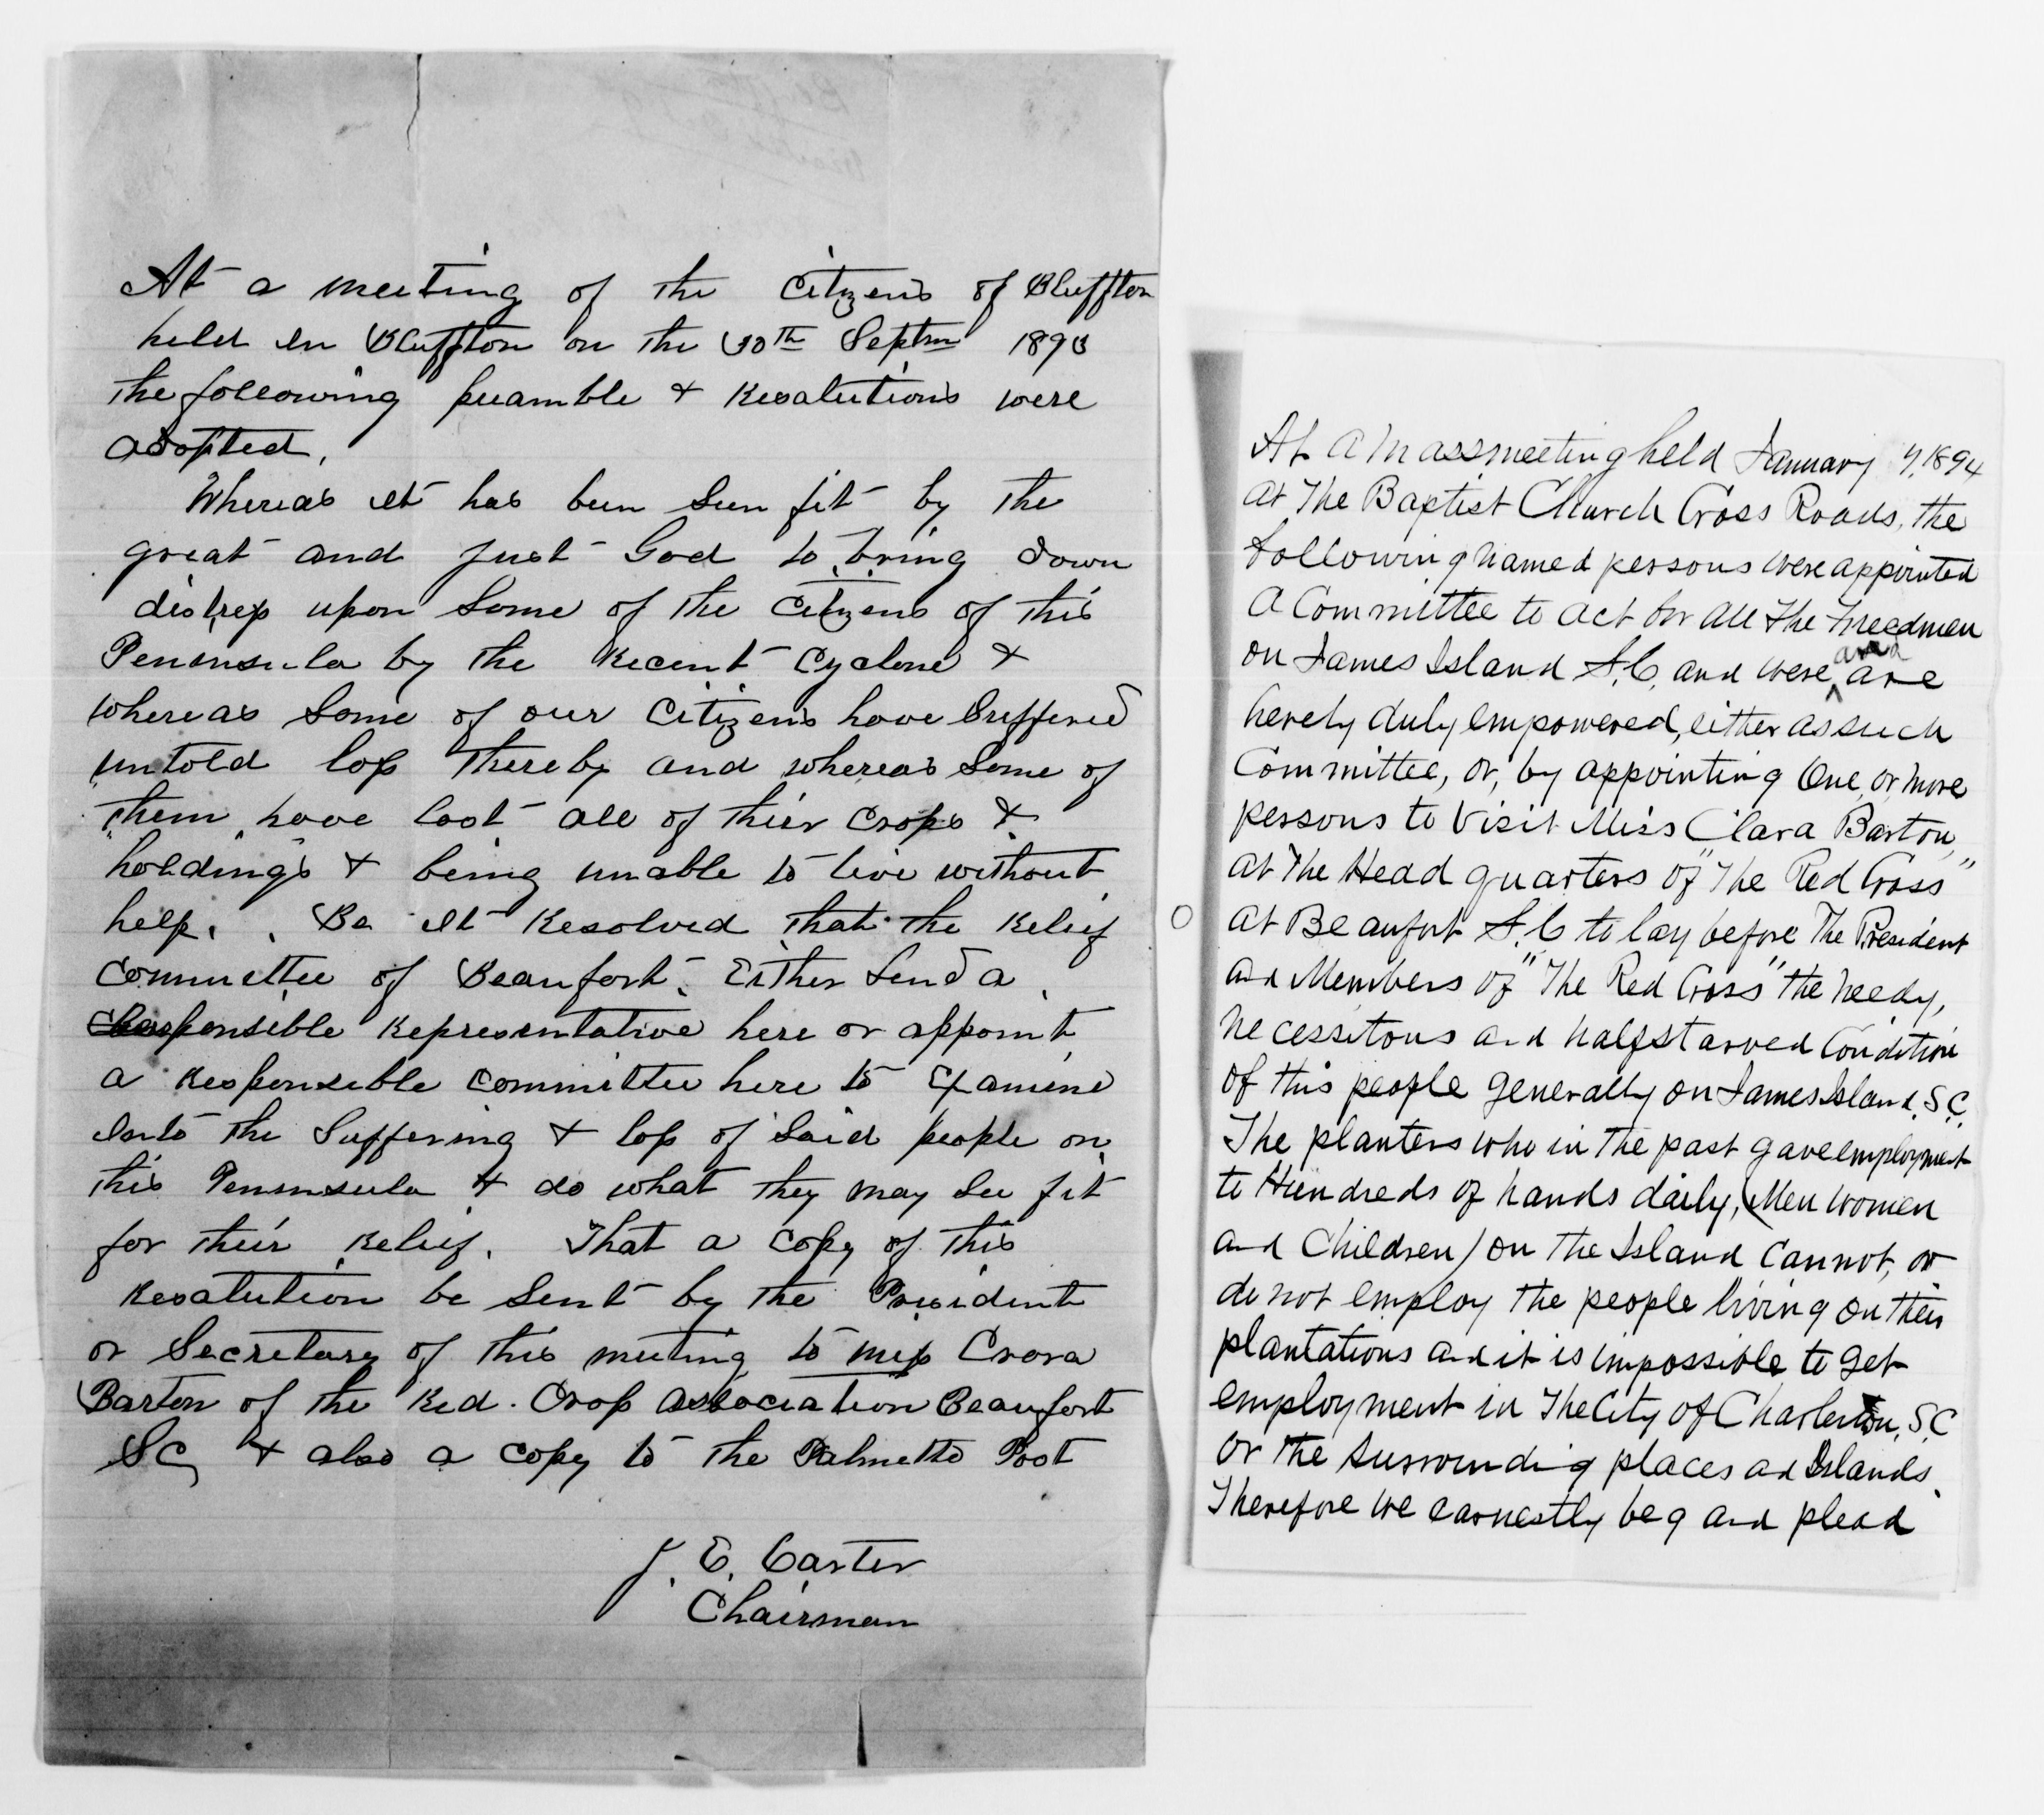 At a meeting of the Citizens of Bluffton
held in Bluffton on the 30th Septm 1893
the following preamble & Resolutions were
adopted.
Whereas it has been seen fit by the
great and just God to bring down
distress upon some of the Citizens of this
Peninsula by the Recent Cyclone &
whereas some of our Citizens have suffered
untold loss thereby and whereas some of
them have lost all of their crops &
holdings & being unable to live without
help. Be it Resolved that the Relief
Committee of Beaufort Either Send a
Responsible Representative here or appoint
a Responsible Committee here to Examine
into the Suffering & loss of said people on
this Peninsula & do what they may see fit
for their Relief. That a copy of this
Resolution be sent by the President
or Secretary of this meeting to miss Crora
Barton of the Red. Cross association Beaufort
SC & also a copy to the Palmetto Post
J. E. Carter
Chairman
At a Massmeeting held January 7, 1894
at The Baptist Church Cross Roads, the
following named persons were appointed
a Committee to act for all the Freedmen
on James Island S.C. and were and are
herely duly empowered, either as such
Committee, or, by appointing One, or more
persons to Visit Miss Clara Barton,
at The Head quarters of "The Red Cross"
at Beaufort S.C to lay before The President
and Members of "The Red Cross" the needy,
necessitous and halfstarved Condition
of this people generally on James Island, S.C.
The planters who in the past gave employment
to Hundreds of hands daily, (Men women
and Children) on The Island Cannot, or
do not employ the people living on their
plantations and it is impossible to get
employment in The City of Charleston, S.C
or the surrounding places and Islands.
Therefore we earnestly beg and plead